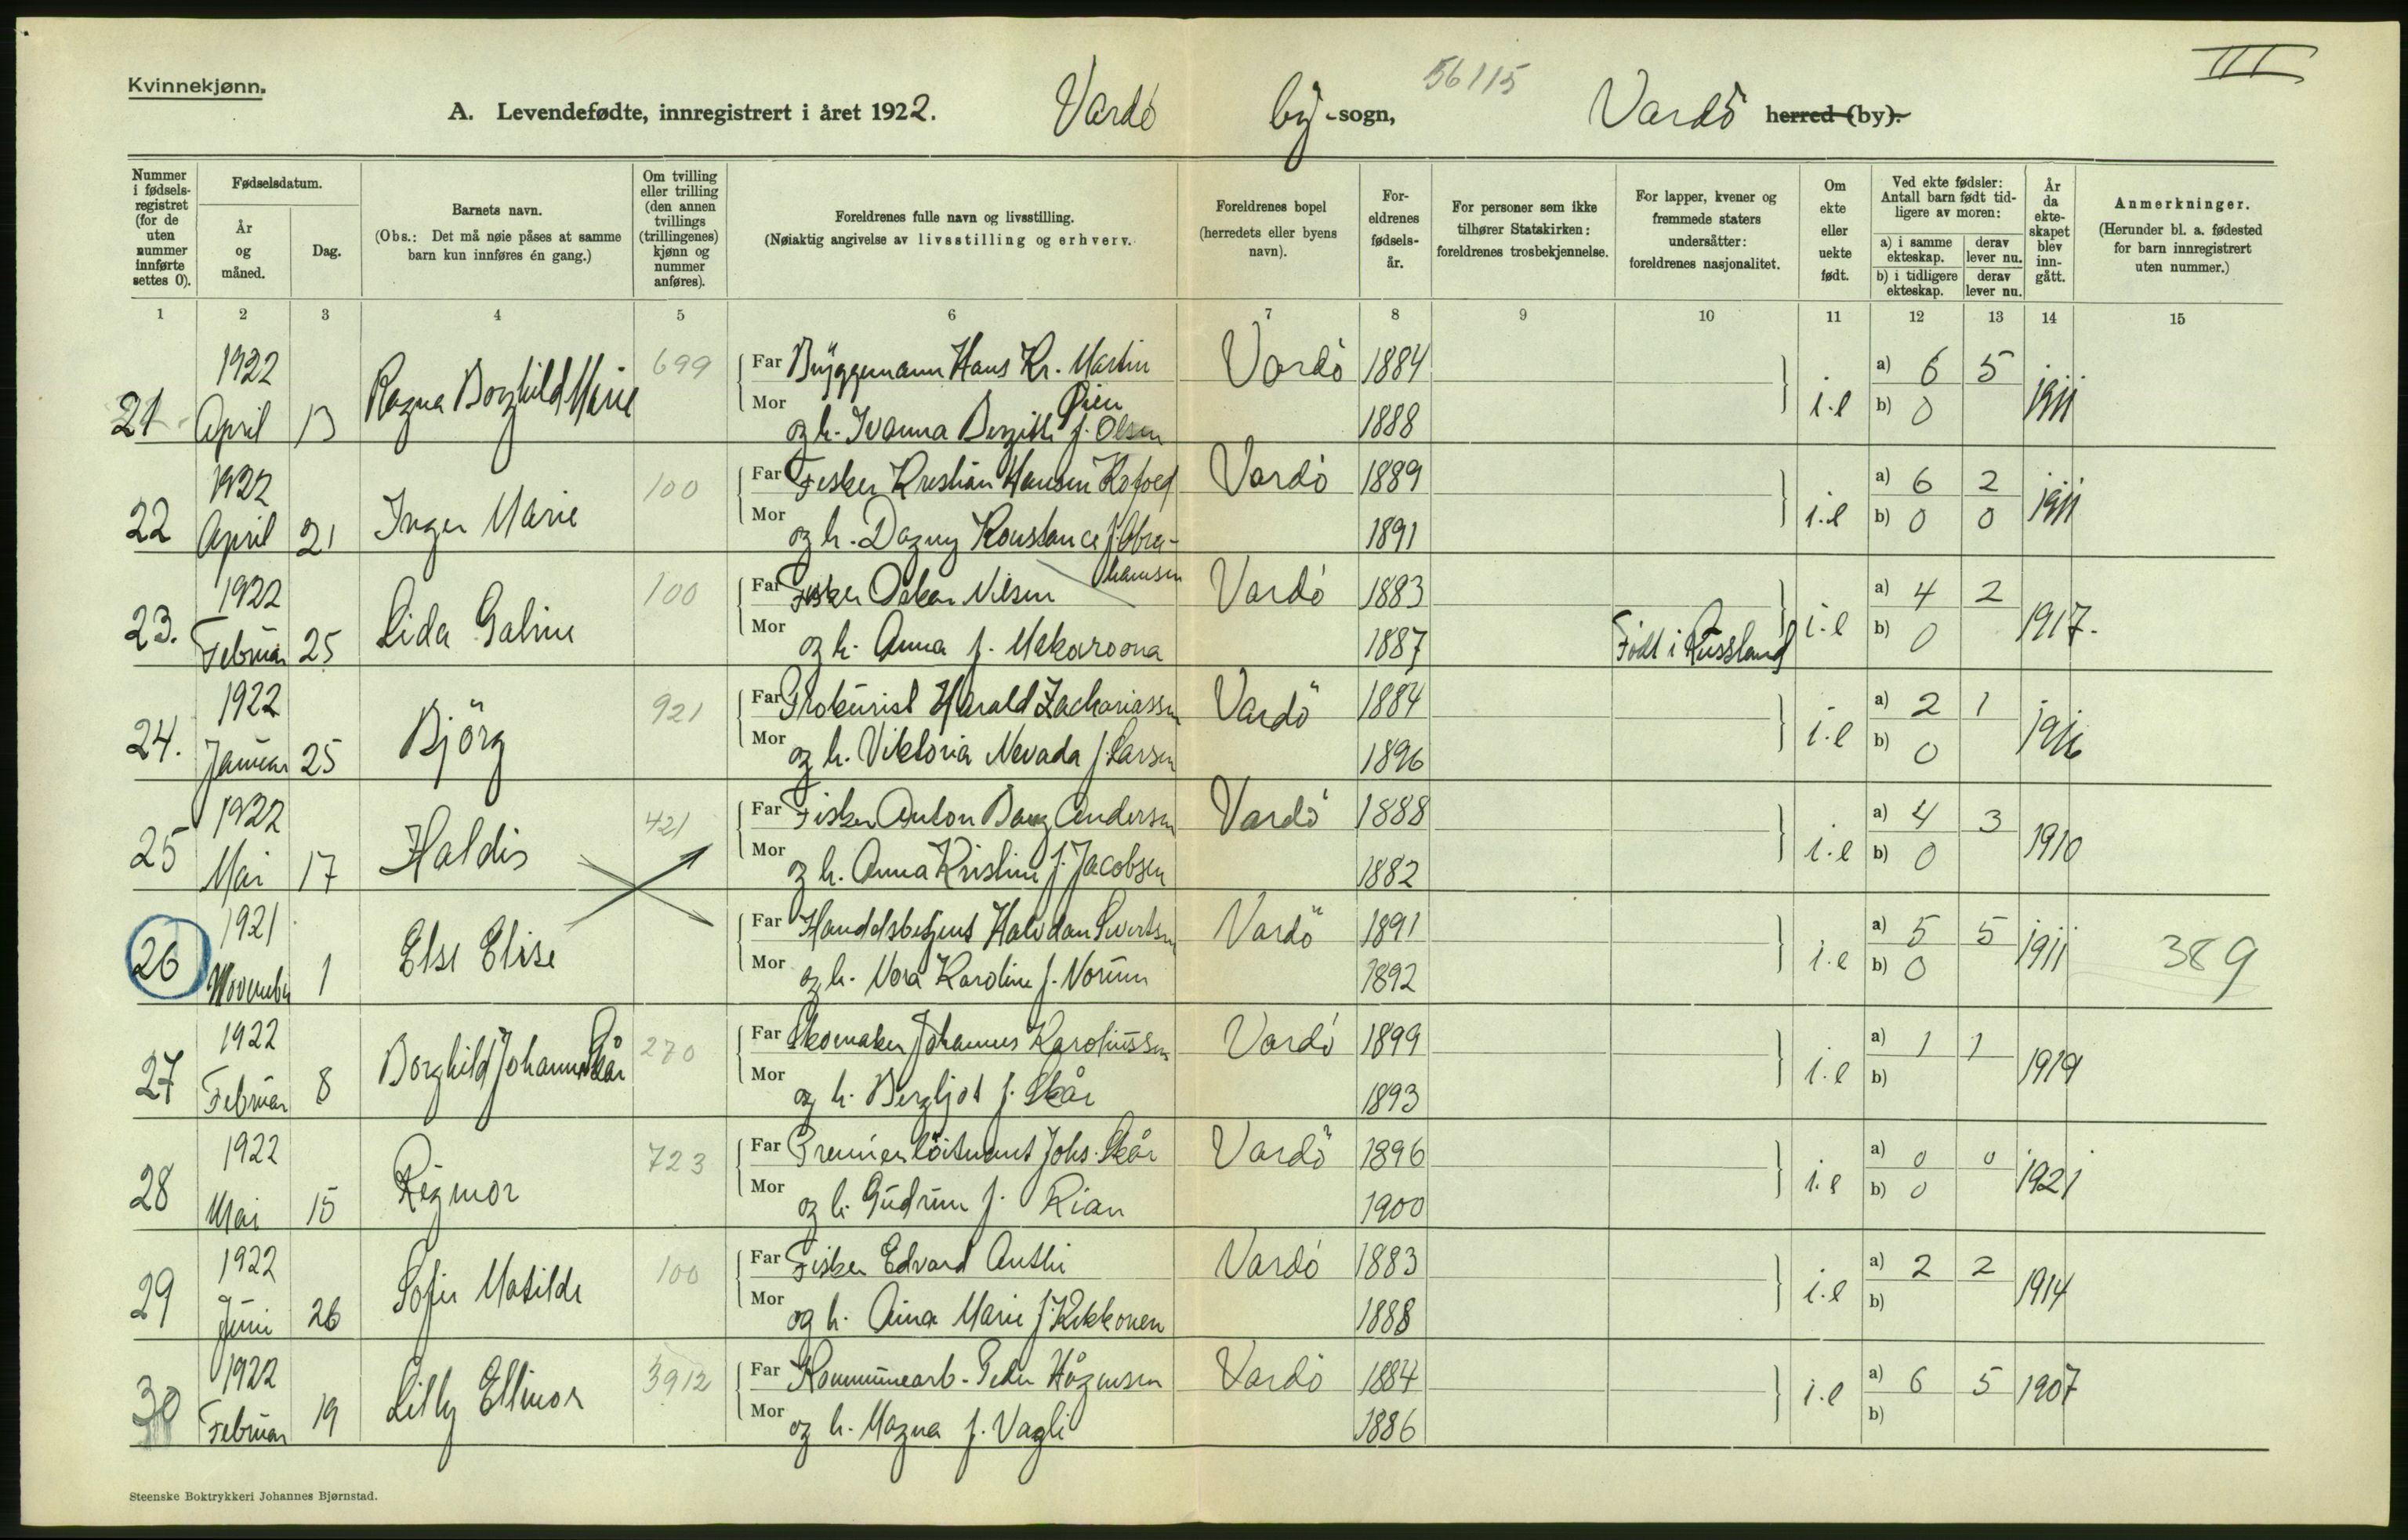 III
Kvinnekjønn.
56115
A. Levendefødte, innregistrert i året 1922. Vardö by-sogn, Vardö herred (by).
Nummer i fødsels-registret (for de uten nummer innførte settes 0).
Fødselsdatum.
År og måned.
Dag.
Barnets navn.
(Obs.: Det må nøie påses at samme barn kun innføres én gang.)
Om tvilling eller trilling (den annen tvillings (trillingenes) kjønn og nummer anføres).
Foreldrenes fulle navn og livsstilling.
(Nøiaktig angivelse av livsstilling og erhverv.
Foreldrenes bopel (herredets eller byens navn).
For-eldrenes fødsels-år.
For personer som ikke tilhører Statskirken: foreldrenes trosbekjennelse.
For lapper, kvener og fremmede staters undersåtter: foreldrenes nasjonalitet.
Om ekte eller uekte født.
Ved ekte fødsler: Antall barn født tid-ligere av moren:
a) i samme ekteskap.
derav lever nu.
b) i tidligere ekteskap.
derav lever nu.
År da ekte-skapet blev inn-gått.
Anmerkninger.
(Herunder bl. a. fødested for barn innregistrert uten nummer.)
1 2 3 4 5 6 7 8 9 10 11 12 13 14 15
21 1922 April 13 Ragna Borghild Marie 699 Far Byggemann Hans Kr. Martin Vardö 1884 i.e a) 6 5 1911
Mor og h. Ivanna Bergitte f. Olsen Øien 1888 b) 0
22 1922 April 21 Inger Marie 100 Far Fisker Kristian Hansen Kofoed Vardö 1889 i.e a) 6 2 1911
Mor og h. Dagny Konstance f. Abra-hamsen 1891 b) 0 0
23. 1922 Februar 25 Lida Galine 100 Far Fisker Oskar Nilsen Vardö 1883 i.e a) 4 2 1917.
Mor og h. Anna f. Makaroona 1887 Födt i Russland b) 0
24. 1922 Januar 25 Björg 921 Far Prokurist Harald Zachariassen Vardö 1884 i.e a) 2 1 1916
Mor og h. Viktoria Nevada f. Larsen 1896 b) 0
25 1922 Mai 17 Haldis 421 Far Fisker Anton Bang Andersen Vardö 1888 i.e a) 4 3 1910
Mor og h. Anna Kristine f. Jacobsen 1882 b) 0
26 1921 November 1 Else Elise Far Handelsbetjent Halvdan Sivertsen Vardö 1891 i.e a) 5 5 1911 389
Mor og h. Nora Karoline f. Norum 1892 b) 0
27 1922 Februar 8 Borghild Johanne Skår 270 Far Skomaker Johannes Karoliussen Vardö 1899 i.e a) 1 1 1919
Mor og h. Bergljot f. Skår 1893 b)
28 1922 Mai 15 Rigmor 723 Far Premierlöitnant Johs. Skår Vardö 1896 i.e a) 0 0 1921
Mor og h. Gudrun f. Rian 1900 b) 0
29 1922 Juni 26 Sofie Matilde 100 Far Fisker Edvard Anthi Vardö 1883 i.e a) 2 2 1914
Mor og h. Aina Marie f. Kekkonen 1888 b)
30 1922 Februar 19 Lilly Ellinor 3912 Far Kommunearb. Peder Hågensen Vardö 1884 i.e a) 6 5 1907
Mor og h. Magna f. Vagli 1886 b)
Steenske Boktrykkeri Johannes Bjørnstad.